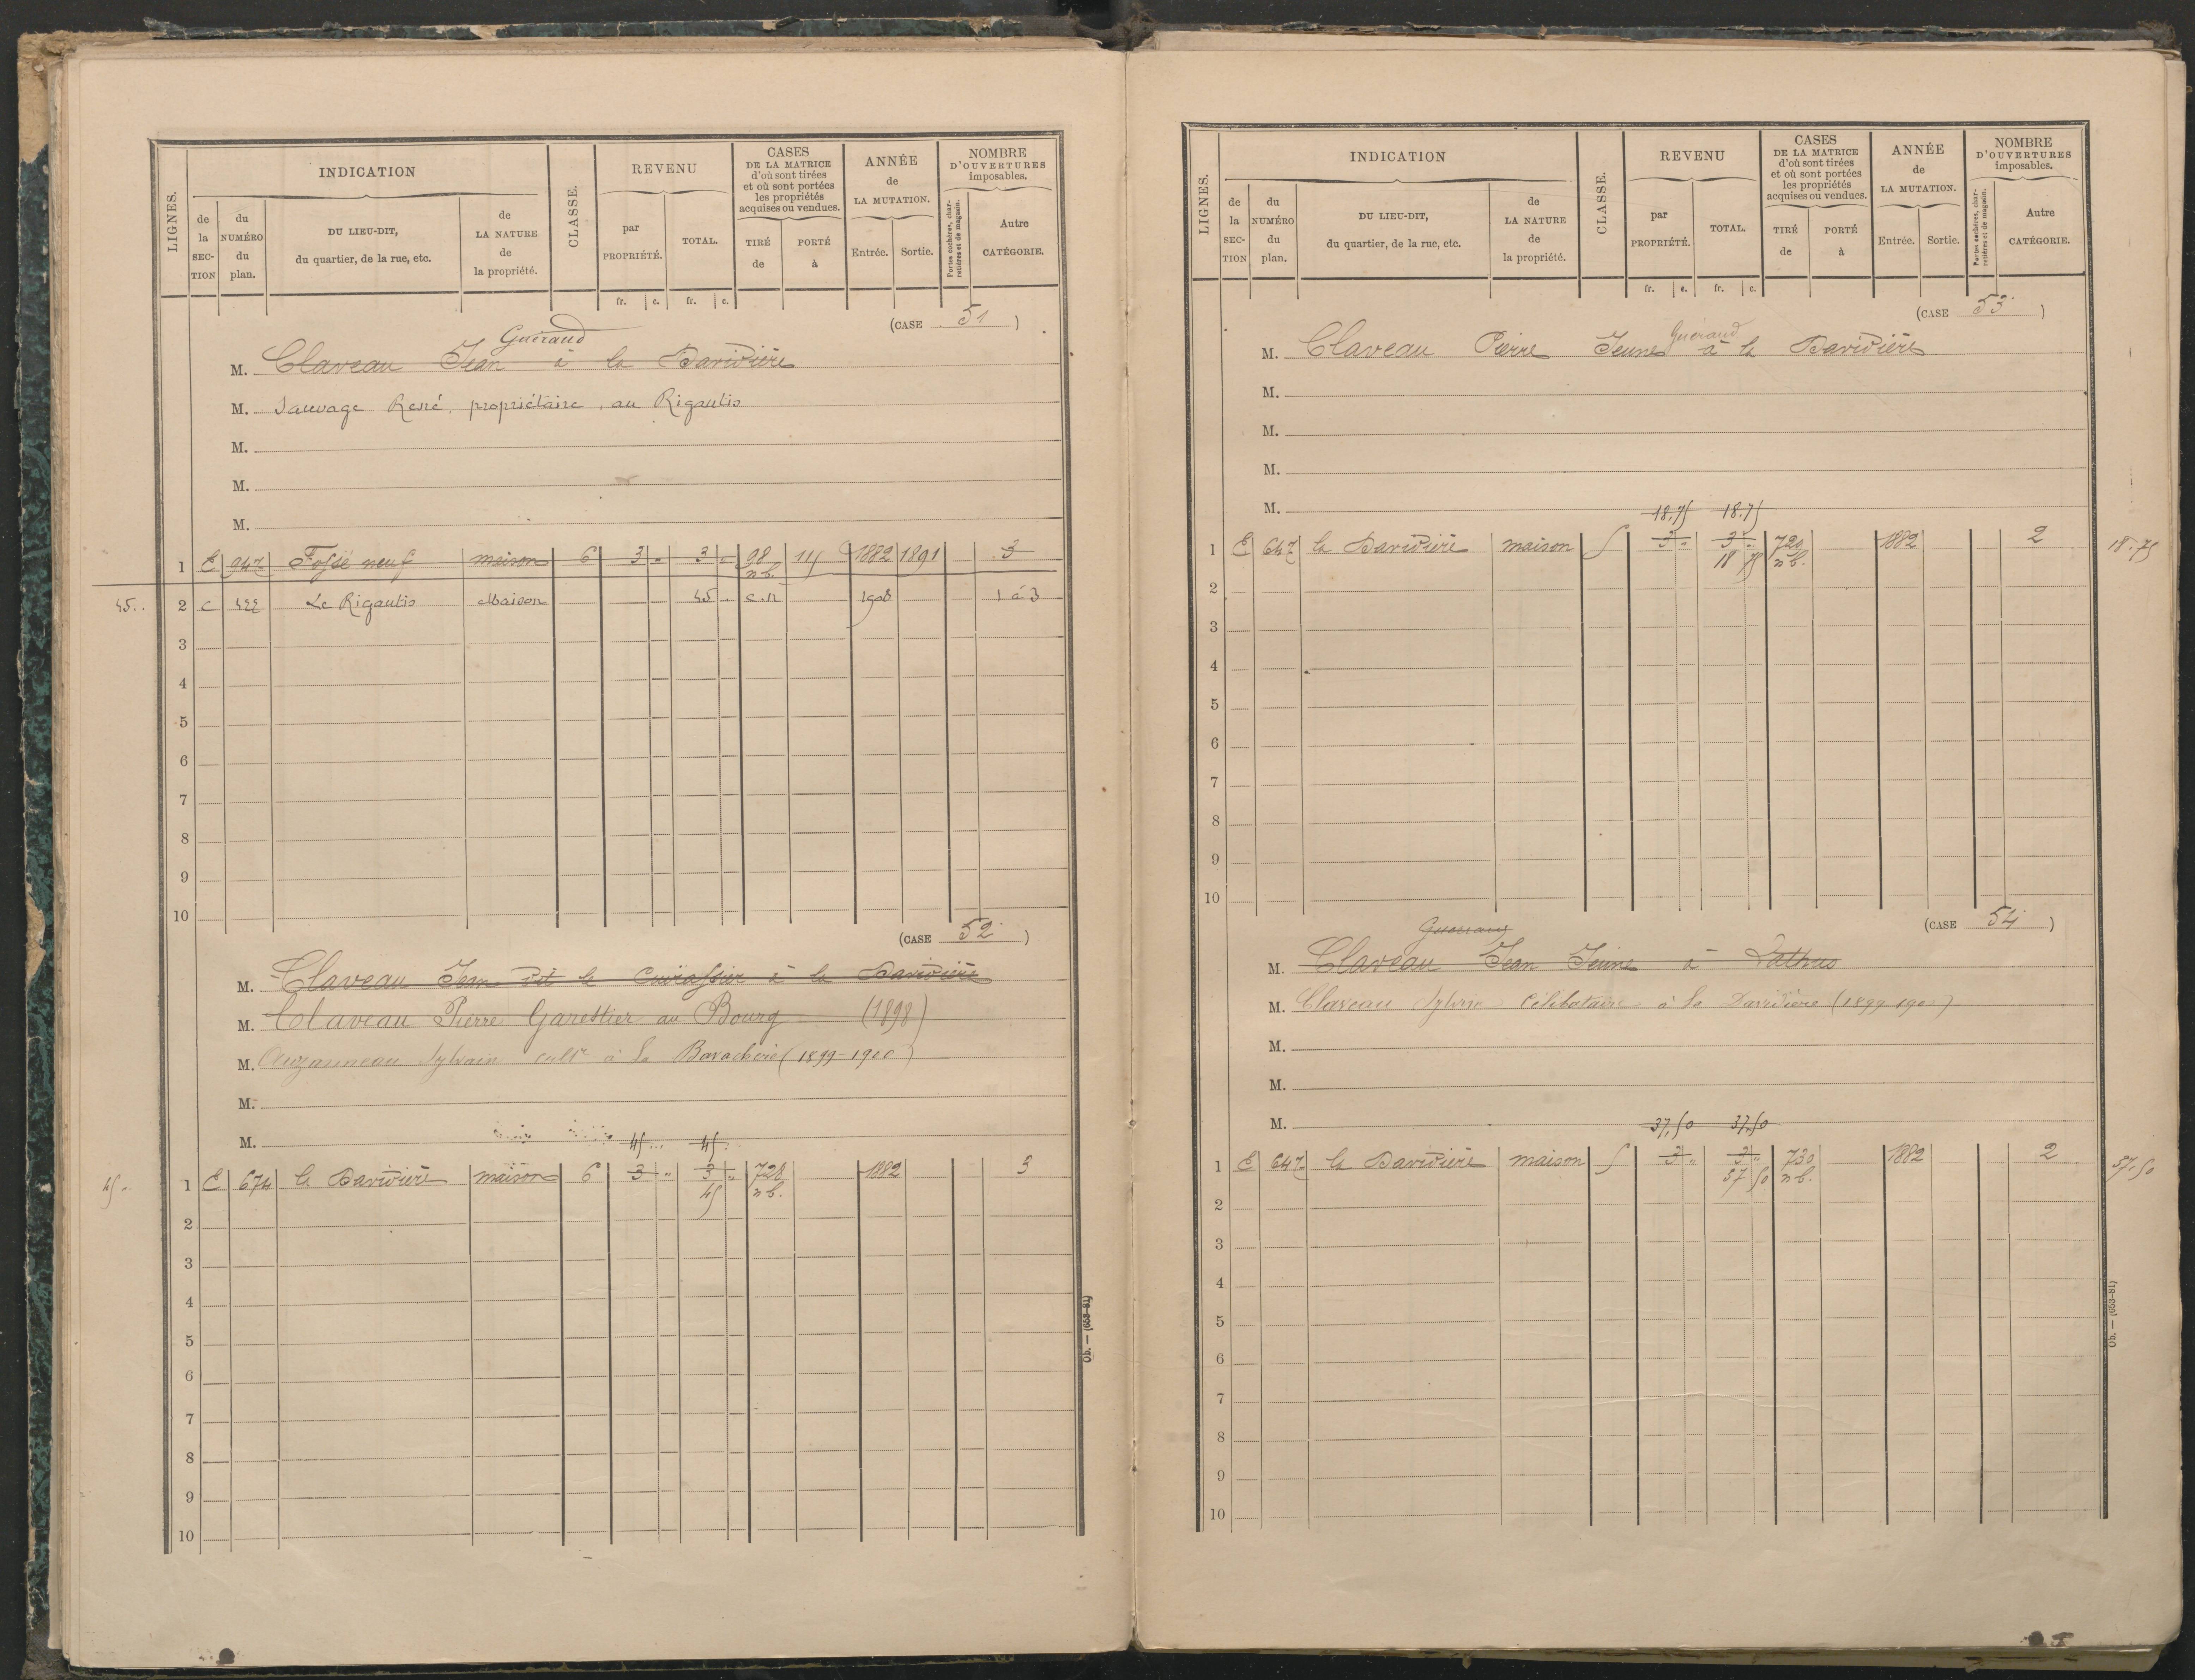 LIGNES. INDICATION CLASSE. REVENU CASES DE LA MATRICE d'où sont tirées et où sont portées les propriétés acquises ou vendues. ANNÉE de LA MUTATION. NOMBRE D'OUVERTURES imposables.
de la SECTION du NUMÉRO du plan. DU LIEU-DIT, du quartier, de la rue, etc. de LA NATURE de la propriété. par PROPRIÉTÉ. TOTAL. TIRÉ de PORTÉ à Entrée. Sortie. Portes cochères, charretières et de magasin. Autre CATÉGORIE.
fr. c. fr. c.
(CASE 51)
Guéraud
M. Claveau Jean à la Davidière
M. Sauvage René, propriétaire, au Rigautis
M.
M.
M.
1 E 947 Fossé neuf maison 6 3 " 3 " 98 n.b. 1882 1891 3
45 .. 2 C 422 Le Rigautis Maison 45 .. C.N 1908 1 à 3
3
4
5
6
7
8
9
10
(CASE 52)
M. Claveau Jean dit le Cuirassier à la Davidière
M. Claveau Pierre Garestier au Bourg (1898)
M. Auzanneau Sylvain cult^r à la Baracherie (1899-1900)
M.
M. 45 .. 45 .
45 - 1 E 674 la Davidière maison 6 3 " 3 " 728 n.b. 1882 3
45
2
3
4
5
6
7
8
9
10
Ob. — (653-81)
LIGNES. INDICATION CLASSE. REVENU CASES DE LA MATRICE d'où sont tirées et où sont portées les propriétés acquises ou vendues. ANNÉE de LA MUTATION. NOMBRE D'OUVERTURES imposables.
de la SECTION du NUMÉRO du plan. DU LIEU-DIT, du quartier, de la rue, etc. de LA NATURE de la propriété. par PROPRIÉTÉ. TOTAL. TIRÉ de PORTÉ à Entrée. Sortie. Portes cochères, charretières et de magasin. Autre CATÉGORIE.
fr. c. fr. c.
(CASE 53)
Guéraud
M. Claveau Pierre Jeune à la Davidière
M.
M.
M.
M. 18.75 18.75
1 E 647 la Davidière maison 5 3 " 3 " 729 n.b. 1882 2 18.75
18 75
2
3
4
5
6
7
8
9
10
(CASE 54)
M. Claveau Jean Jeune à Lathus
M. Claveau Sylvain Célibataire à la Davidière (1899-1900)
M.
M.
M. 37,50 37,50
1 E 647 la Davidière maison 5 3 " 3 " 730 n.b. 1882 2 37.50
37 50
2
3
4
5
6
7
8
9
10
Ob. — (653-81)